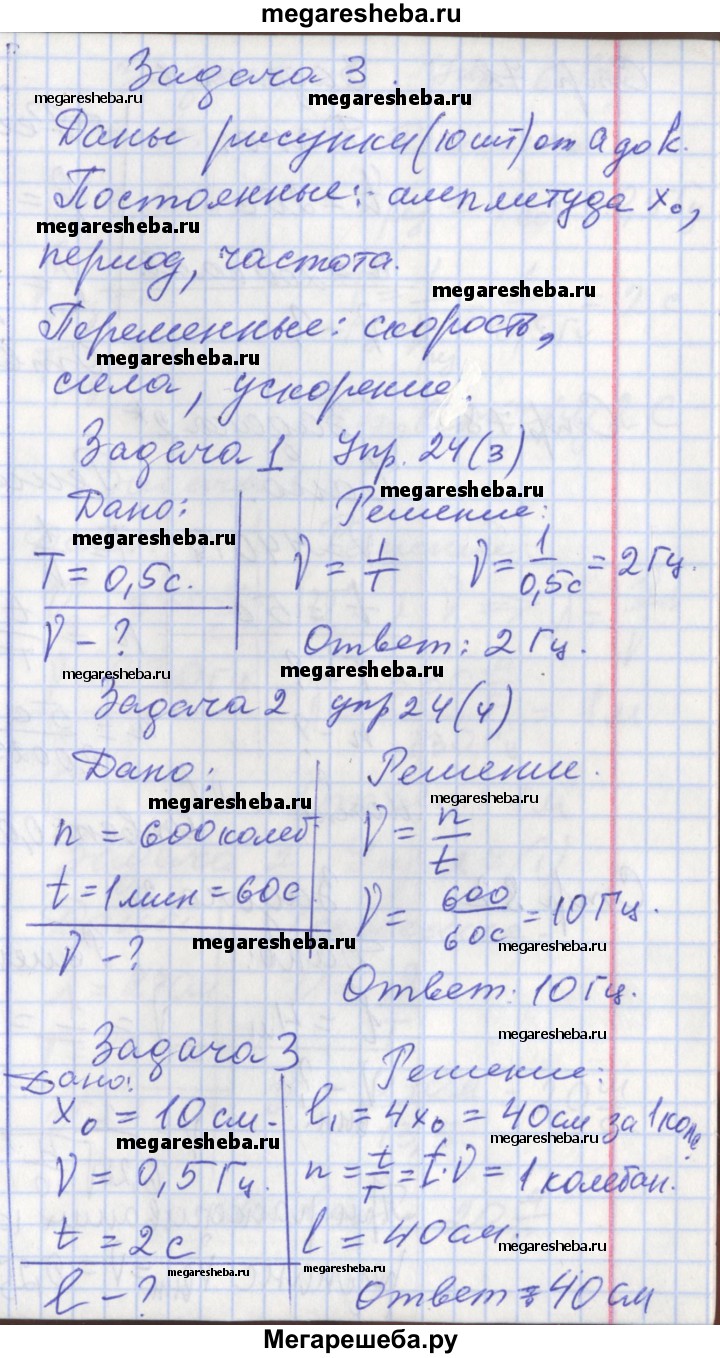 megaresheba.ru
Задача 3.
megaresheba.ru megaresheba.ru
Даны рисунки (10 шт) от а до к.
Постоянные: амплитуда x₀,
megaresheba.ru
период, частота.
megaresheba.ru
Переменные: скорость,
megaresheba.ru
сила, ускорение.
Задача 1 Упр. 24(3)
megaresheba.ru
Дано: Решение:
megaresheba.ru
T = 0,5с. ν = 1/T ν = 1/0,5с = 2 Гц.
ν - ? Ответ: 2 Гц.
megaresheba.ru megaresheba.ru
Задача 2 упр 24(4)
Дано: Решение.
megaresheba.ru megaresheba.ru
n = 600 колеб ν = n/t
t = 1 мин = 60с ν = 600/60с = 10 Гц.
megaresheba.ru megaresheba.ru
ν - ?
Ответ: 10 Гц.
megaresheba.ru
Задача 3
Дано: Решение:
x₀ = 10 см. l₁ = 4x₀ = 40 см за 1 коле
megaresheba.ru megaresheba.ru
ν = 0,5 Гц. n = t/T = t·ν = 1 колебан.
t = 2 с l = 40 см.
megaresheba.ru
megaresheba.ru megaresheba.ru
l - ? Ответ: 40 см
megaresheba.ru
Мегарешеба.ру